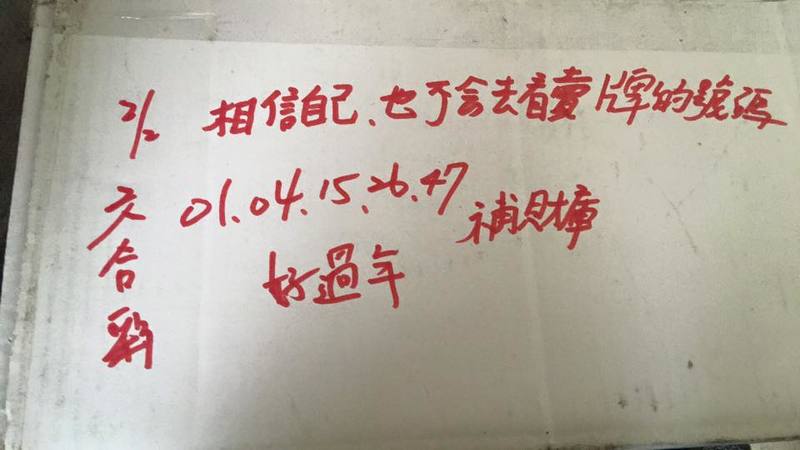 2/2 相信自己、也不會去看賣牌的號碼
六合彩
01.04.15.26.47 補財庫
好過年